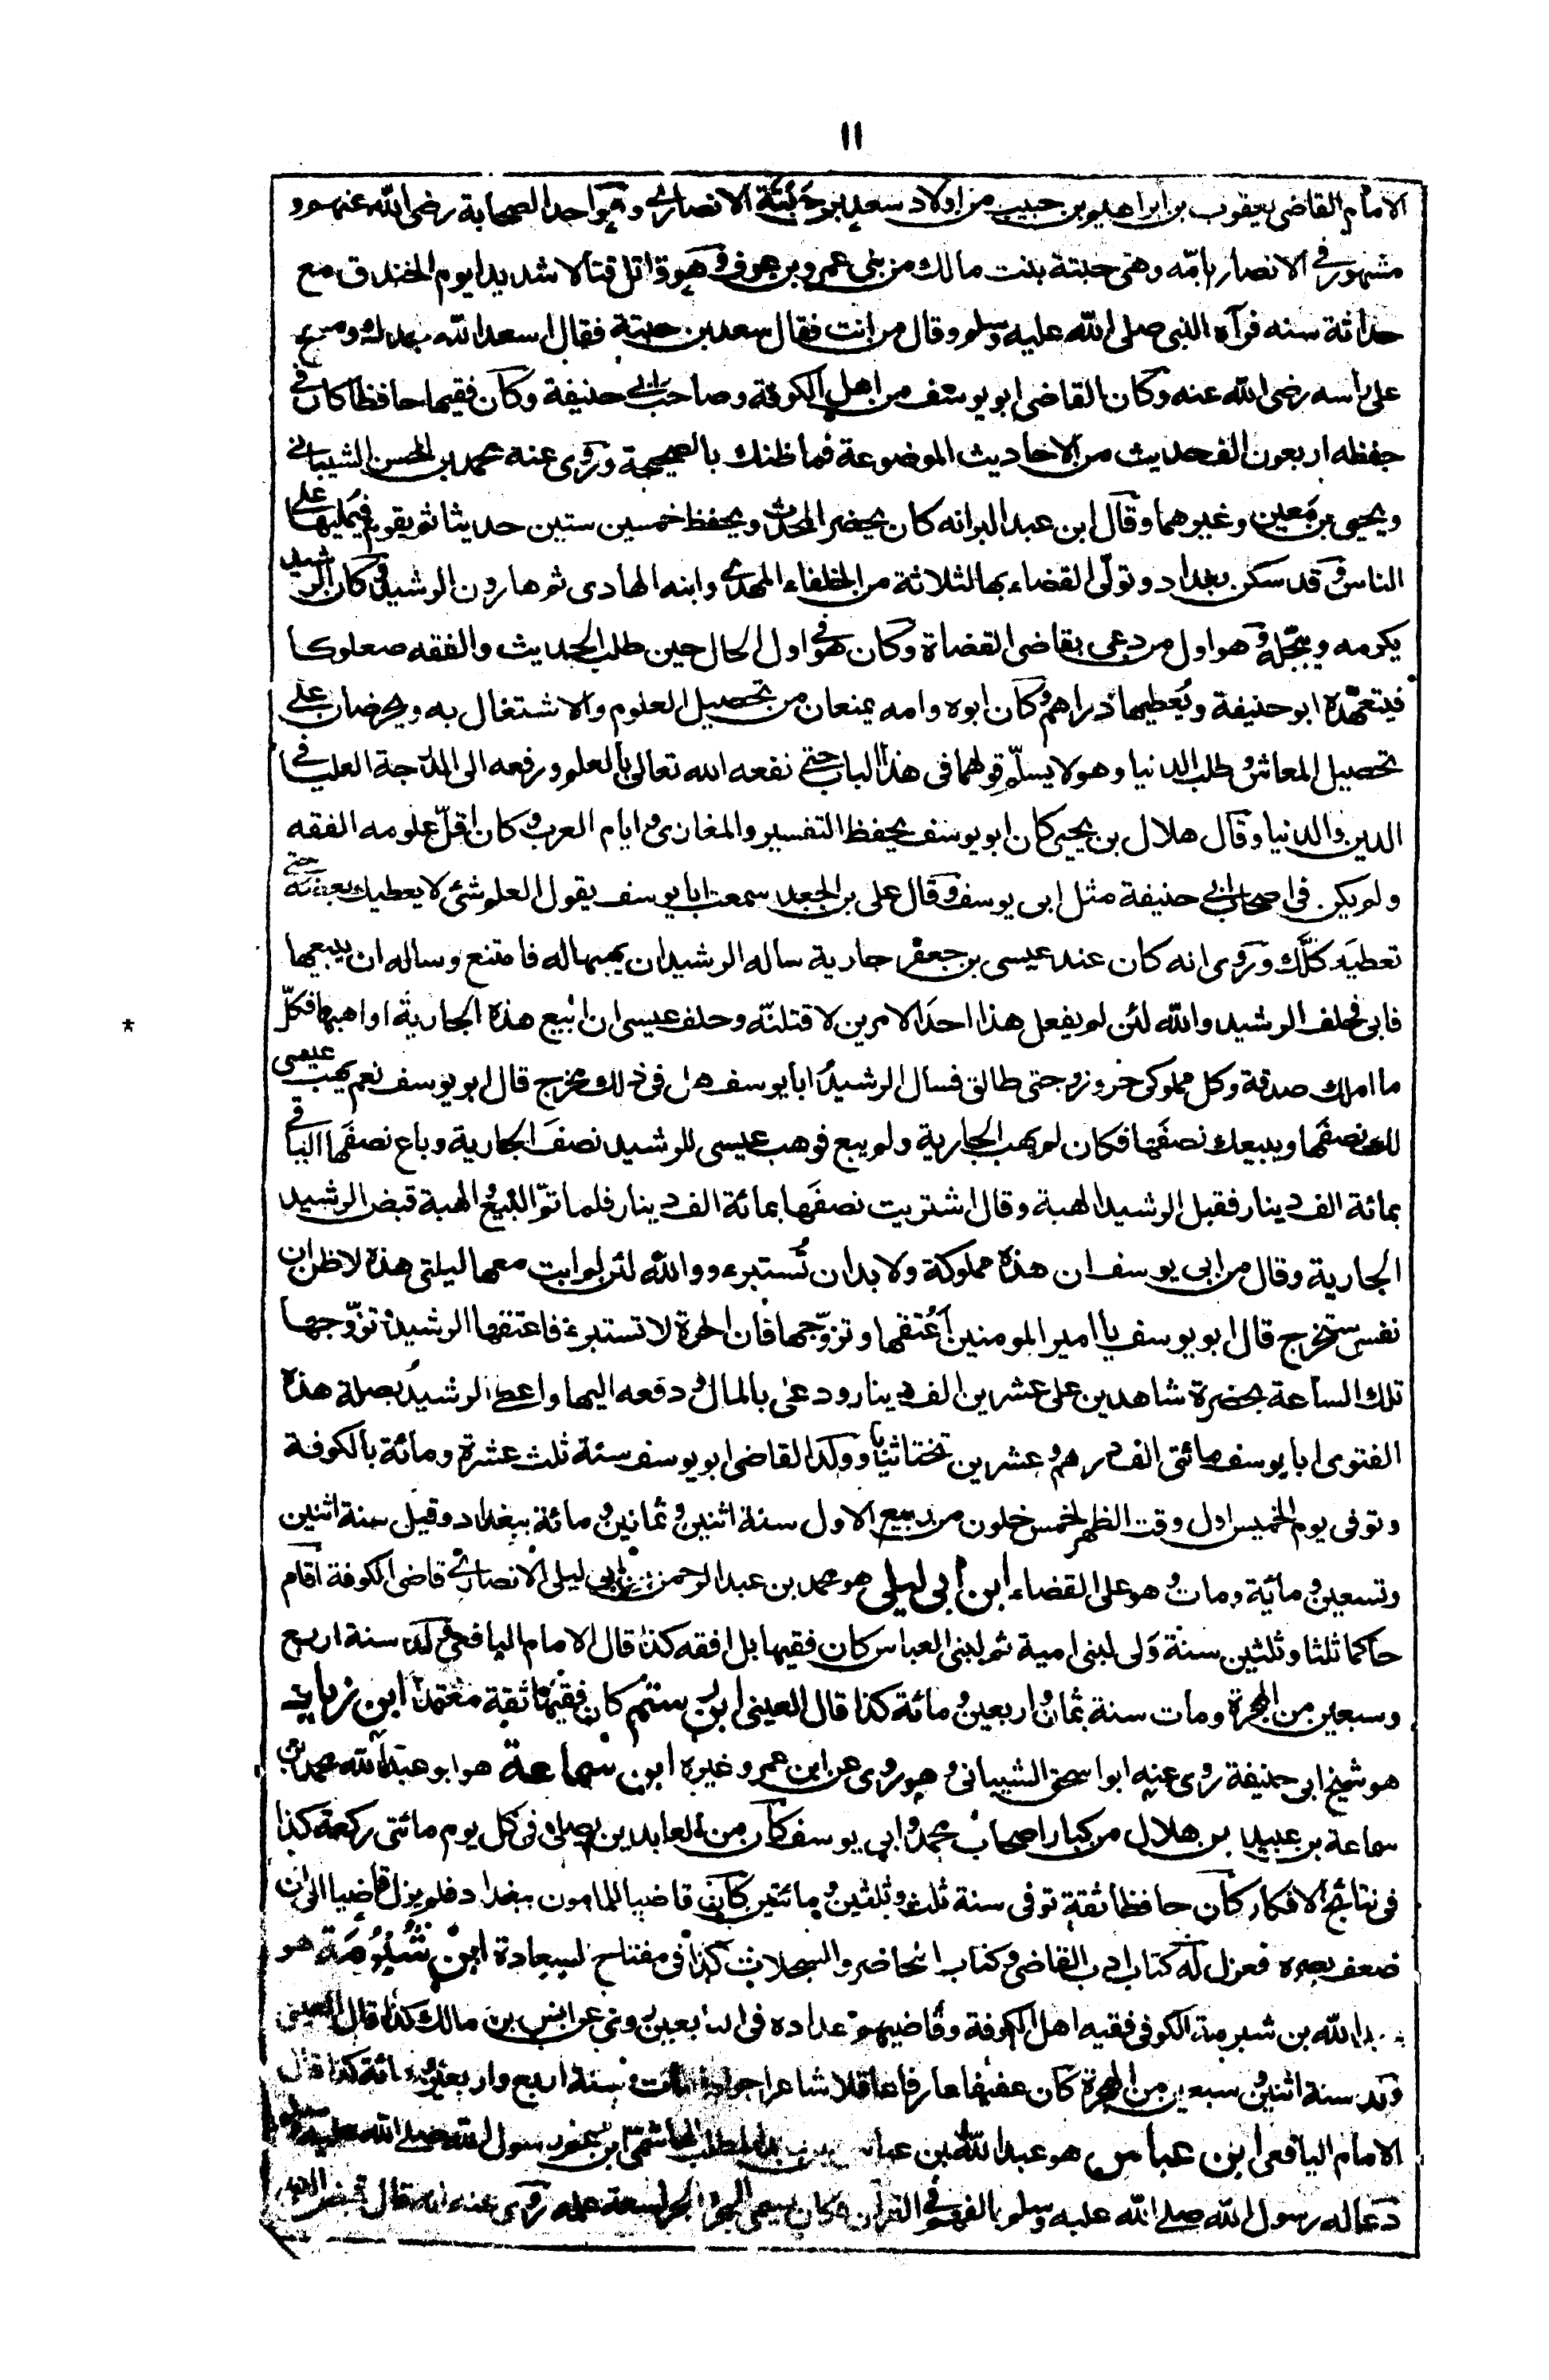 ١١
الامام القاضى يعقوب بن ابراهيم بن حبيب من اولاد سعد بن حَبْتَة الانصارى وهو احد الصحابة رضى الله عنهم و
مشهور فى الانصار بامّه وهى حبتة بنت مالك من بنى عمرو بن عوف وهو قاتل قتالا شديدا يوم الخندق مع
حداثة سنه فرآه النبى صلى الله عليه وسلم وقال من انت فقال سعد بن حبتة فقال اسعد الله جدك ومسح
على راسه رضى الله عنه وكان القاضى ابو يوسف من اهل الكوفة وصاحب ابى حنيفة وكان فقيها حافظا كان فى
حفظه اربعون الف حديث من الاحاديث الموضوعة فما ظنك بالصحيحة وروى عنه محمد بن الحسن الشيبانى
ويحيى بن مَعين وغيرهما وقال ابن عبد البر انه كان يحضر المحدث ويحفظ خمسين ستين حديثا ثم يقوم فيُمليها على
الناس وقد سكن بغداد وتولّى القضاء بها لثلاثة من الخلفاء المهدى وابنه الهادى ثم هارون الرشيد وكان الرشيد
يكرمه ويبجّله وهو اول من دعى بقاضى القضاة وكان هو فى اول الحال حين طلب الحديث والفقه صعلوكا
فيتعهّده ابو حنيفة ويُعطيها دراهم وكان ابوه وامه يمنعان من تحصيل العلوم والاشتغال به ويحرضان على
تحصيل المعاش وطلب الدنيا وهو لا يسلّم قولهما فى هذا الباب حتى نفعه الله تعالى بالعلم ورفعه الى الدرجة العليا فى
الدين والدنيا وقال هلال بن يحيى كان ابو يوسف يحفظ التفسير والمغازى وايام العرب وكان اقلّ علومه الفقه
ولم يكن فى اصحاب ابى حنيفة مثل ابى يوسف وقال على بن الجعد سمعت ابا يوسف يقول العلم شئ لا يعطيك بعضه حتى
تعطيَه كلَّك وروى انه كان عند عيسى بن جعفر جارية ساله الرشيد ان يهبها له فامتنع وساله ان يبيعها
فابى فحلف الرشيد والله لئن لم يفعل هذا احدَ الامرين لاقتلنّه وحلف عيسى ان ابيع هذه الجارية او اهبها فكلّ
ما املك صدقة وكل مملوكى حر وزوجتى طالق فسال الرشيدُ ابا يوسف هل فى ذلك مخرج قال ابو يوسف نعم يهب عيسى
لك نصفَها ويبيعك نصفَها فكان لم يهب الجارية ولم يبع فوهب عيسى للرشيد نصفَ الجارية وباع نصفَها الباقى
بمائة الف دينار فقبل الرشيد الهبة وقال اشتريت نصفَها بمائة الف دينار فلما تمّ البيع والهبة قبض الرشيد
الجارية وقال من ابى يوسف ان هذه مملوكة ولا بد ان تُستبرء ووالله لئن لم ابت معها ليلتى هذه لاظن ان
نفسى ستخرج قال ابو يوسف يا امير المومنين اَعْتقها وتزوّجها فان الحرة لا تستبرء فاعتقها الرشيد وتزوّجها
تلك الساعة بحضرة شاهدين على عشرين الف دينار ودعى بالمال ودفعه اليها واعطى الرشيدُ بصلة هذه
الفتوى ابا يوسف مائتى الف درهم وعشرين تختا ثيابا وولد القاضى ابو يوسف سنة ثلث عشرة ومائة بالكوفة
وتوفى يوم الخميس اول وقت الظهر لخمس خلون من ربيع الاول سنة اثنين وثمانين ومائة ببغداد وقيل سنة اثنين
وتسعين ومائة ومات وهو على القضاء ابن ابى ليلى هو محمد بن عبد الرحمن بن ابى ليلى الانصارى قاضى الكوفة اقام
حاكما ثلثا وثلثين سنة وَلى لبنى امية ثم لبنى العباس كان فقيها بل افقه كذا قال الامام اليافعى ولد سنة اربع
وسبعين من الهجرة ومات سنة ثمان واربعين ومائة كذا قال العينى ابن رستم كان فقيها ثقة معتمدا ابن زياد
هو شيخ ابى حنيفة روى عنه ابو اسحق الشيبانى وهو روى عن ابن عمر وغيره ابن سماعة هو ابو عبد الله محمد بن
سماعة بن عبيد بن هلال من كبار اصحاب محمد وابى يوسف كان من العابدين يصلى فى كل يوم مائتى ركعة كذا
فى نتائج الافكار كان حافظا ثقة توفى سنة ثلث وثلثين ومائتين كان قاضيا للمامون ببغداد فلم يزل قاضيا الى ان
ضعف بصره فعزل له كتاب ادب القاضى وكتاب المحاضر والسجلات كذا فى مفتاح السعادة ابن شُبْرُمَة هو
عبد الله بن شبرمة الكوفى فقيه اهل الكوفة وقاضيهم عداده فى التابعين روى عن انس بن مالك كذا قال العينى
ولد سنة اثنين وسبعين من الهجرة كان عفيفا عارفا عاقلا شاعرا جوادا مات سنة اربع واربعين ومائة كذا قال
الامام اليافعى ابن عباس هو عبد الله بن عباس بن عبد المطلب الهاشمى ابن عم رسول الله صلى الله عليه وسلم
دعا له رسول الله صلى الله عليه وسلم بالفهم فى القرآن وكان يسمى البحر والحبر لسعة علمه روى عنه انه قال قبض النبى
*